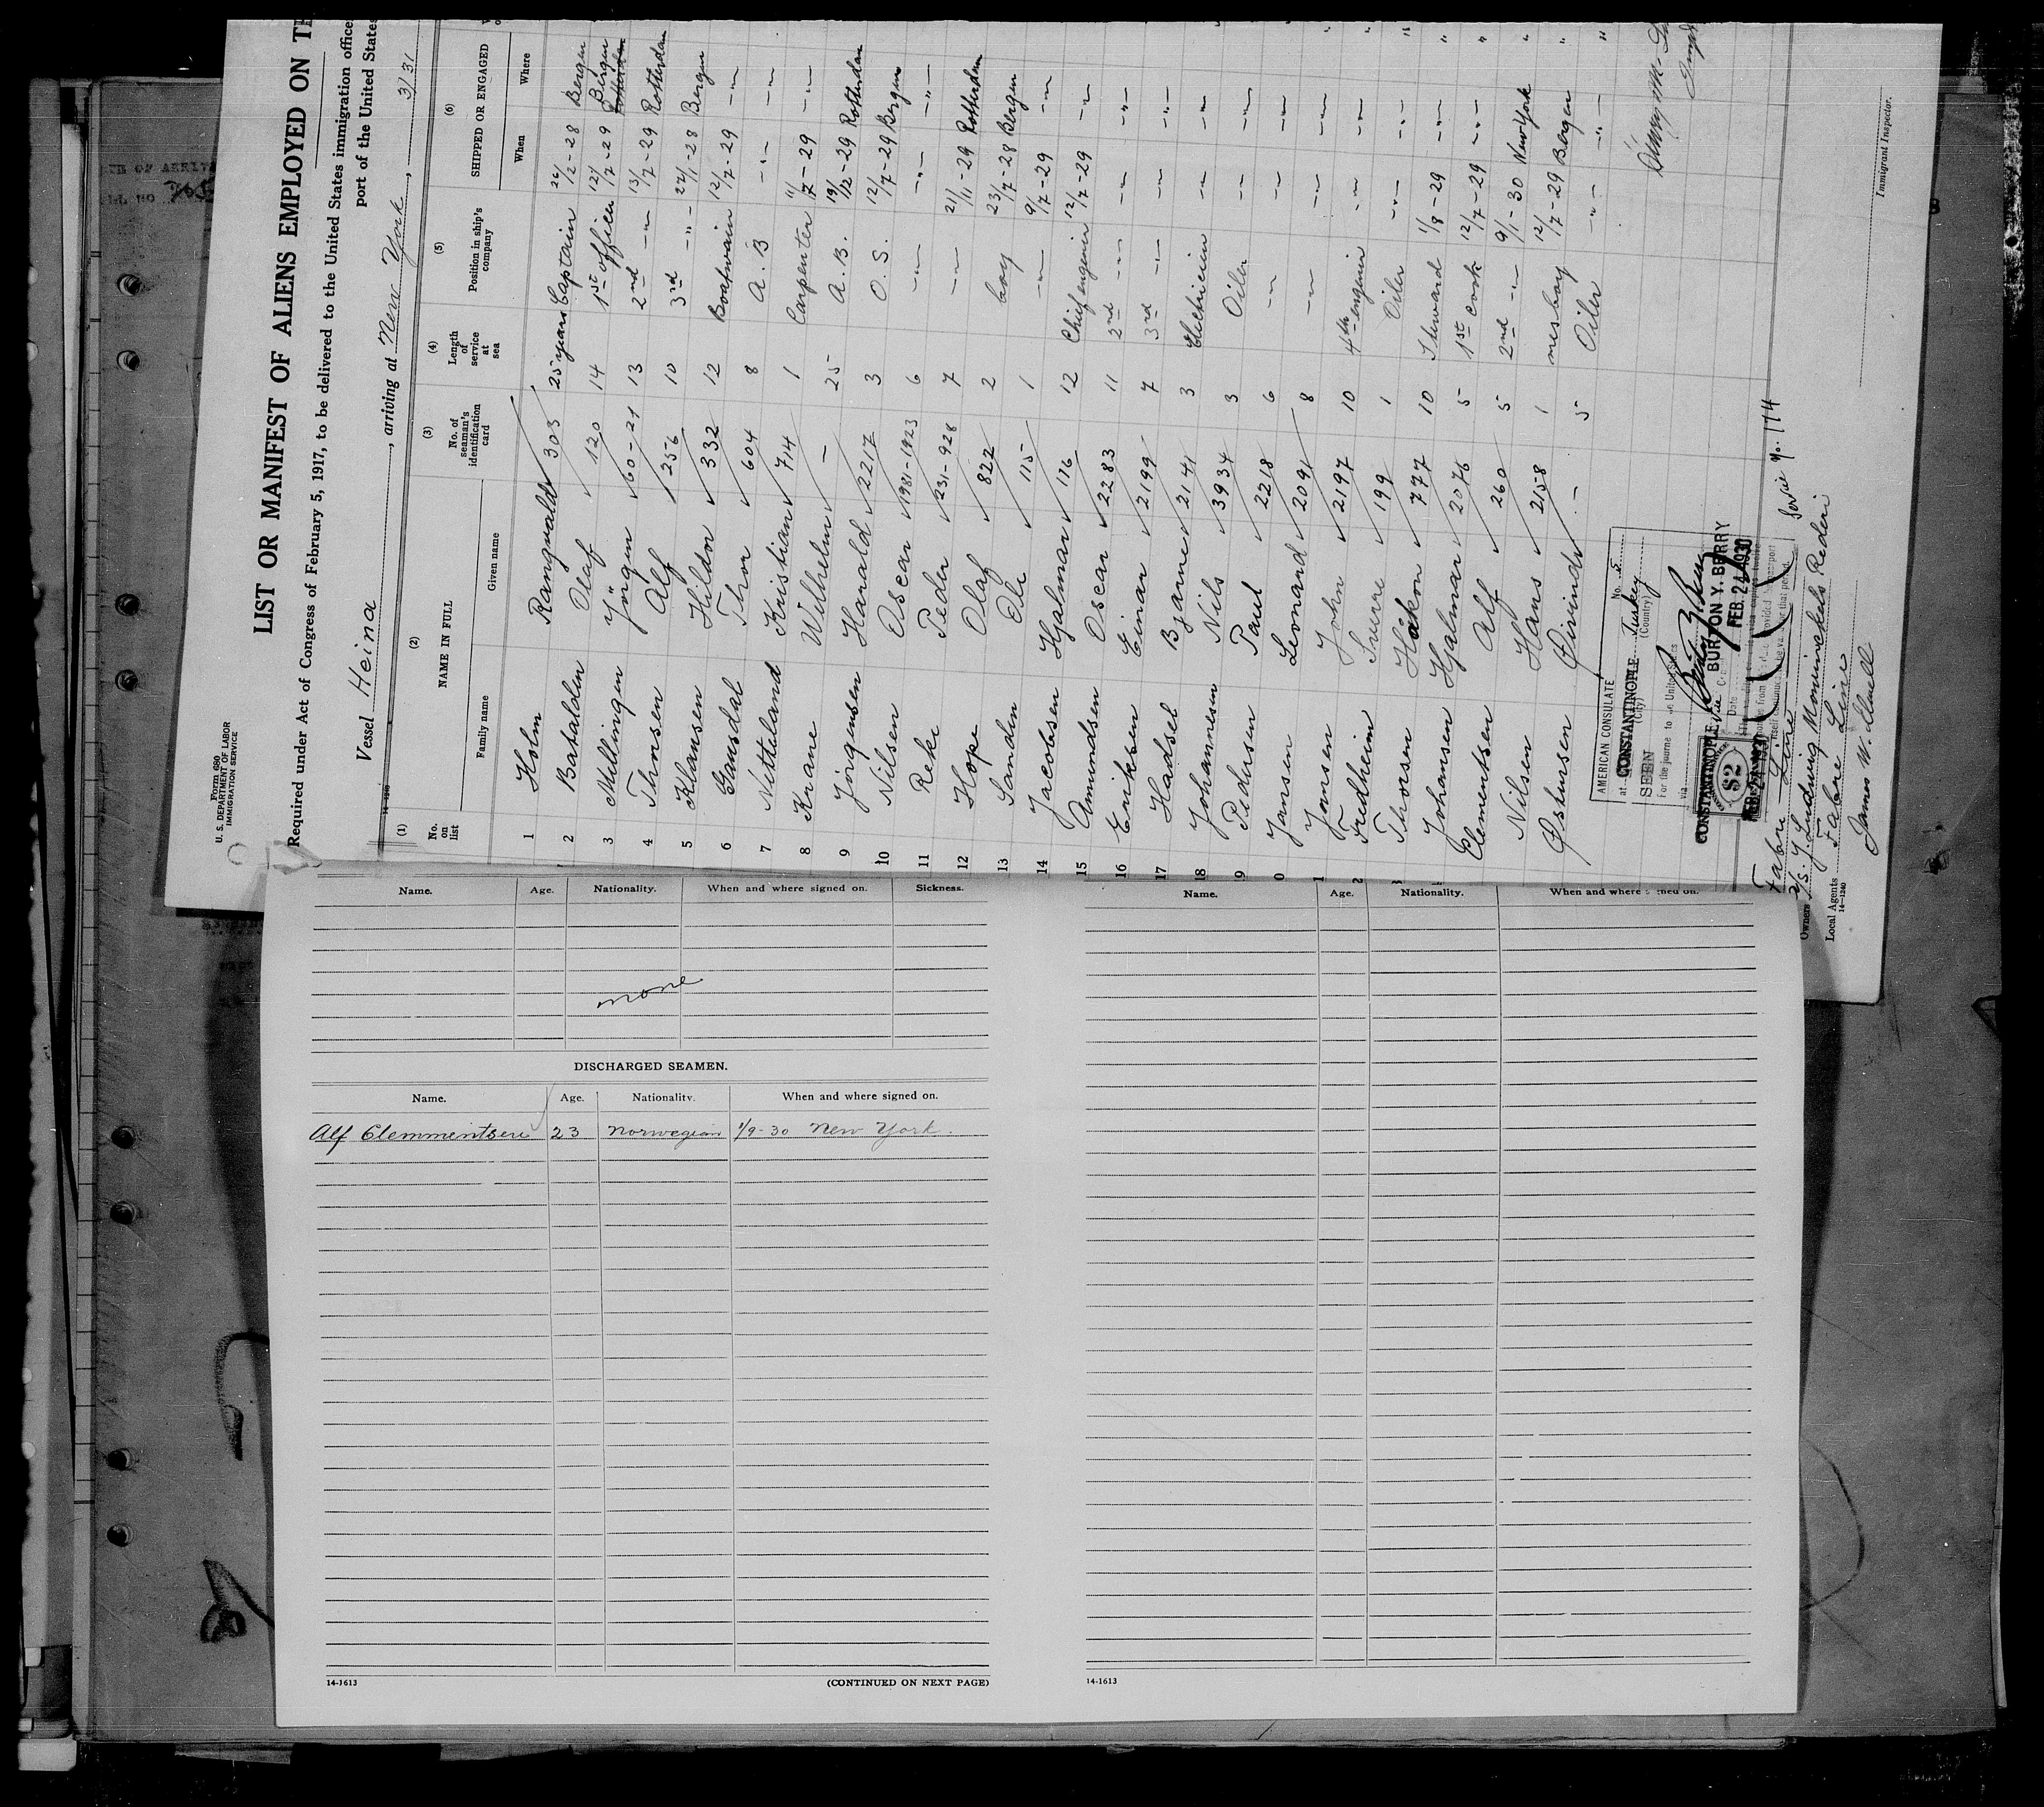 Form 680
U. S. DEPARTMENT OF LABOR
IMMIGRATION SERVICE
LIST OR MANIFEST OF ALIENS EMPLOYED ON
Required under Act of Congress of February 5, 1917, to be delivered to the United States immigration office
port of the United States
Vessel Heina, arriving at New York, 3/31
(1) (2) (3) (4) (5) (6)
No. on list NAME IN FULL No. of seaman's identification card Length of service at sea Position in ship's company SHIPPED OR ENGAGED
Family name Given name When Where
1 Holm Rangvald 303 25 years Captain 26/12-28 Bergen
2 Batalden Olaf 120 14 1st officer 12/7-29 Bergen
3 Millingen Jörgen 60-21 13 2nd -"- 13/7-29 Rotterdam
4 Thomsen Alf 256 10 3rd -"- 22/11-28 Bergen
5 Klausen Hildor 332 12 Boatswain 12/7-29 -"-
6 Gausdal Thor 604 8 A.B -"- -"-
7 Netteland Kristian 714 1 Carpenter 11/7-29 -"-
8 Krane Wilhelm - 25 A.B. 19/12-29 Rotterdam
9 Jörgensen Harald 2217 3 O.S. 12/7-29 Bergen
10 Nilsen Oscar 1981-1923 6 -"- -"- -"-
11 Reke Peder 231-928 7 -"- 21/11-29 Rotterdam
12 Hope Olaf 822 2 boy 23/7-28 Bergen
13 Sanden Ole 115 1 -"- 9/7-29 -"-
14 Jacobsen Hjalmar 116 12 Chief engineer 12/7-29 -"-
15 Amundsen Oscar 2283 11 2nd -"- -"- -"-
16 Eriksen Einar 2199 7 3rd -"- -"- -"-
17 Hadsel Bjarne 2141 3 Electrician -"- -"-
18 Johannesen Nils 3934 3 Oiler -"- -"-
19 Pedersen Paul 2218 6 -"- -"- -"-
0 Jansen Leonard 2091 8 -"- -"- -"-
1 Jansen John 2197 10 4th engineer -"- -"-
2 Fredheim Sverre 199 1 Oiler -"- -"-
Thorsen Håkon 777 10 Steward 1/8-29 -"-
Johansen Hjalmar 2076 5 1st cook 12/7-29 -"-
Clementsen Alf 260 5 2nd -"- 9/1-30 New York
Nilsen Hans 2158 1 messboy 12/7-29 Bergen
Öivind - 5 Oiler -"- -"-
AMERICAN CONSULATE No. 5
at CONSTANTINOPLE Turkey
(City) (Country)
SEEN
For the journey to the United States
via
BURTON Y. BERRY
CONSTANTINOPLE
Date FEB. 24 1930
$2
Fabre Line
Service No. 174
Owners J. Ludwig Mowinckels Rederi
Local Agents Fabre Line
14-1240
James W. Elwell
Immigrant Inspector.
Name. Age. Nationality. When and where signed on. Sickness.
none
DISCHARGED SEAMEN.
Name. Age. Nationality. When and where signed on.
Alf Clemmentsen 23 Norwegian 1/9-30 New York.
14-1613 (CONTINUED ON NEXT PAGE)
Name. Age. Nationality. When and where signed on.
14-1613